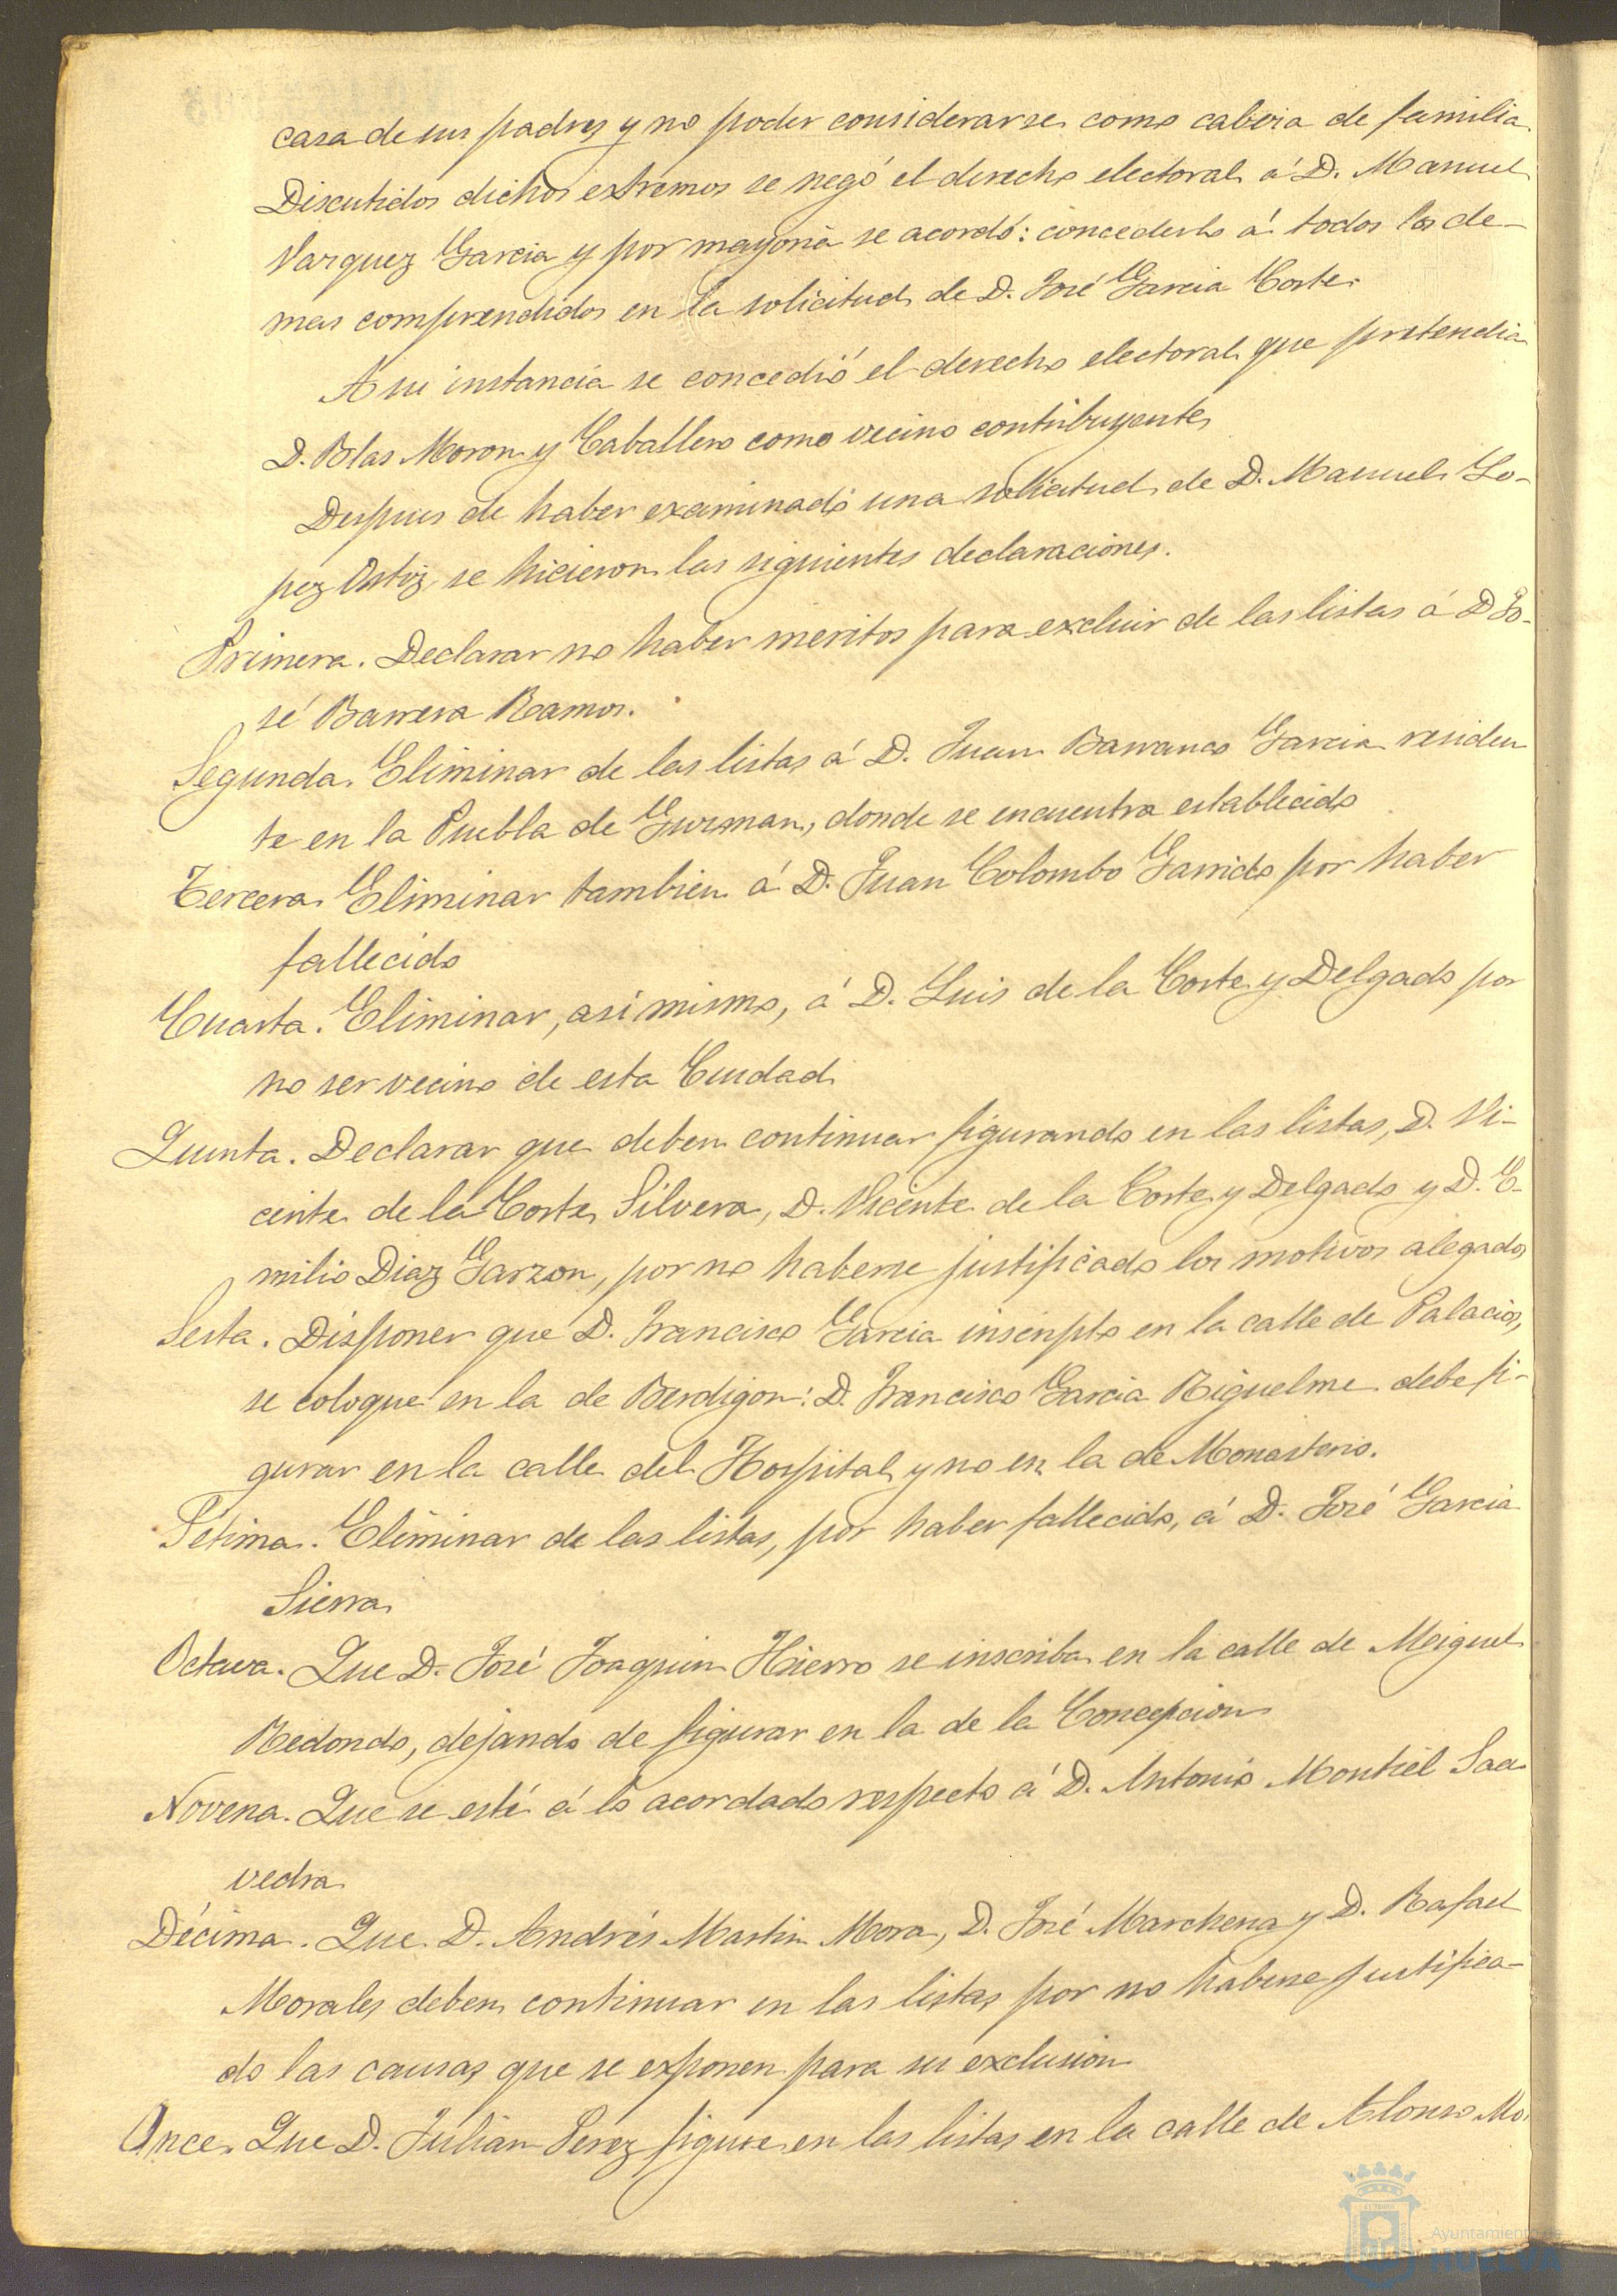 casa de sus padres y no poder considerarse como cabeza de familia.
Discutidos dichos extremos se negó el derecho electoral á D. Manuel
Vazquez Garcia y por mayoria se acordó: concederlo á todos los de-
mas comprendidos en la solicitud de D. José Garcia Corte.
A su instancia se concedió el derecho electoral que pretendia
D. Blas Moron y Caballero como vecino contribuyente
Despues de haber examinado una solicitud de D. Manuel Lo-
pez Ortiz, se hicieron las siguientes declaraciones.
Primera. Declarar no haber meritos para excluir de las listas á D Jo-
sé Barrera Ramos.
Segunda. Eliminar de las listas á D. Juan Barranco Garcia residen
te en la Puebla de Guzman, donde se encuentra establecido
Tercera. Eliminar tambien á D. Juan Colombo Garrido por haber
fallecido
Cuarta. Eliminar, asi mismo, á D. Luis de la Corte y Delgado por
no ser vecino de esta Ciudad.
Quinta. Declarar que deben continuar figurando en las listas, D. Vi-
cente de la Corte Silvera, D. Vicente de la Corte y Delgado y D. E-
milio Diaz Garzon, por no haberse justificado los motivos alegados
Sesta. Disponer que D. Francisco Garcia inscripto en la calle de Palacios,
se coloque en la de Berdigon: D. Francisco Garcia Riguelme debe fi-
gurar en la calle del Hospital y no en la de Monasterio.
Sétima. Eliminar de las listas, por haber fallecido, á D. José Garcia
Sierra
Octava. Que D. José Joaquin Hierro se inscriba en la calle de Meiguel
Redondo, dejando de figurar en la de la Concepcion
Novena. Que se esté á lo acordado respecto á D. Antonio Montiel Saa
vedra
Décima. Que D. Andrés Martin Mora, D. José Marchena y D. Rafael
Morales, deben continuar en las listas por no haberse justifica-
do las causas que se exponen para su exclusion
Once. Que D. Julian Perez figure en las listas en la calle de Alonso Mo.
Ayuntamiento de
HUELVA